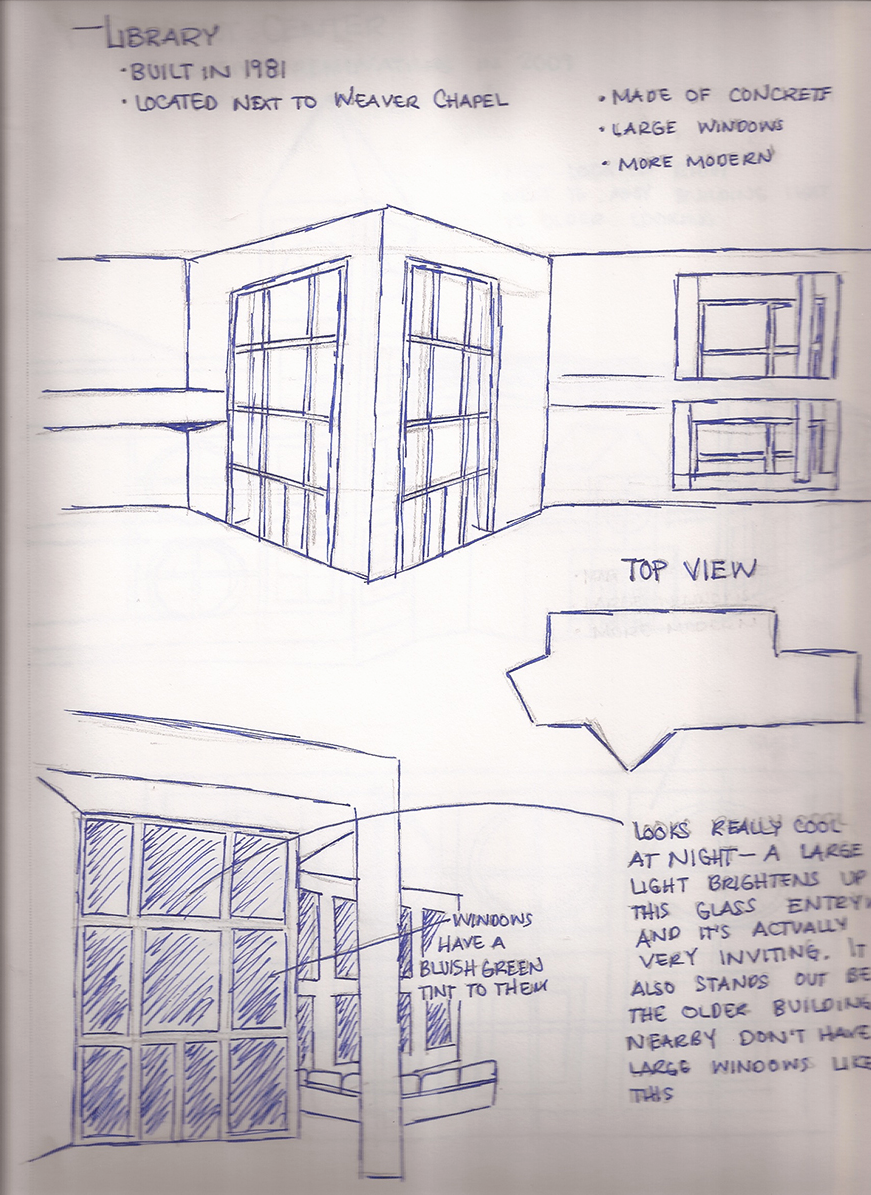 LIBRARY
• BUILT IN 1981
• LOCATED NEXT TO WEAVER CHAPEL
• MADE OF CONCRETE
• LARGE WINDOWS
• MORE MODERN
TOP VIEW
LOOKS REALLY COOL
AT NIGHT — A LARGE
LIGHT BRIGHTENS UP
THIS GLASS ENTRYW
AND IT'S ACTUALLY
VERY INVITING. IT
ALSO STANDS OUT BE
THE OLDER BUILDING
NEARBY DON'T HAVE
LARGE WINDOWS LIKE
THIS
WINDOWS
HAVE A
BLUISH GREEN
TINT TO THEM